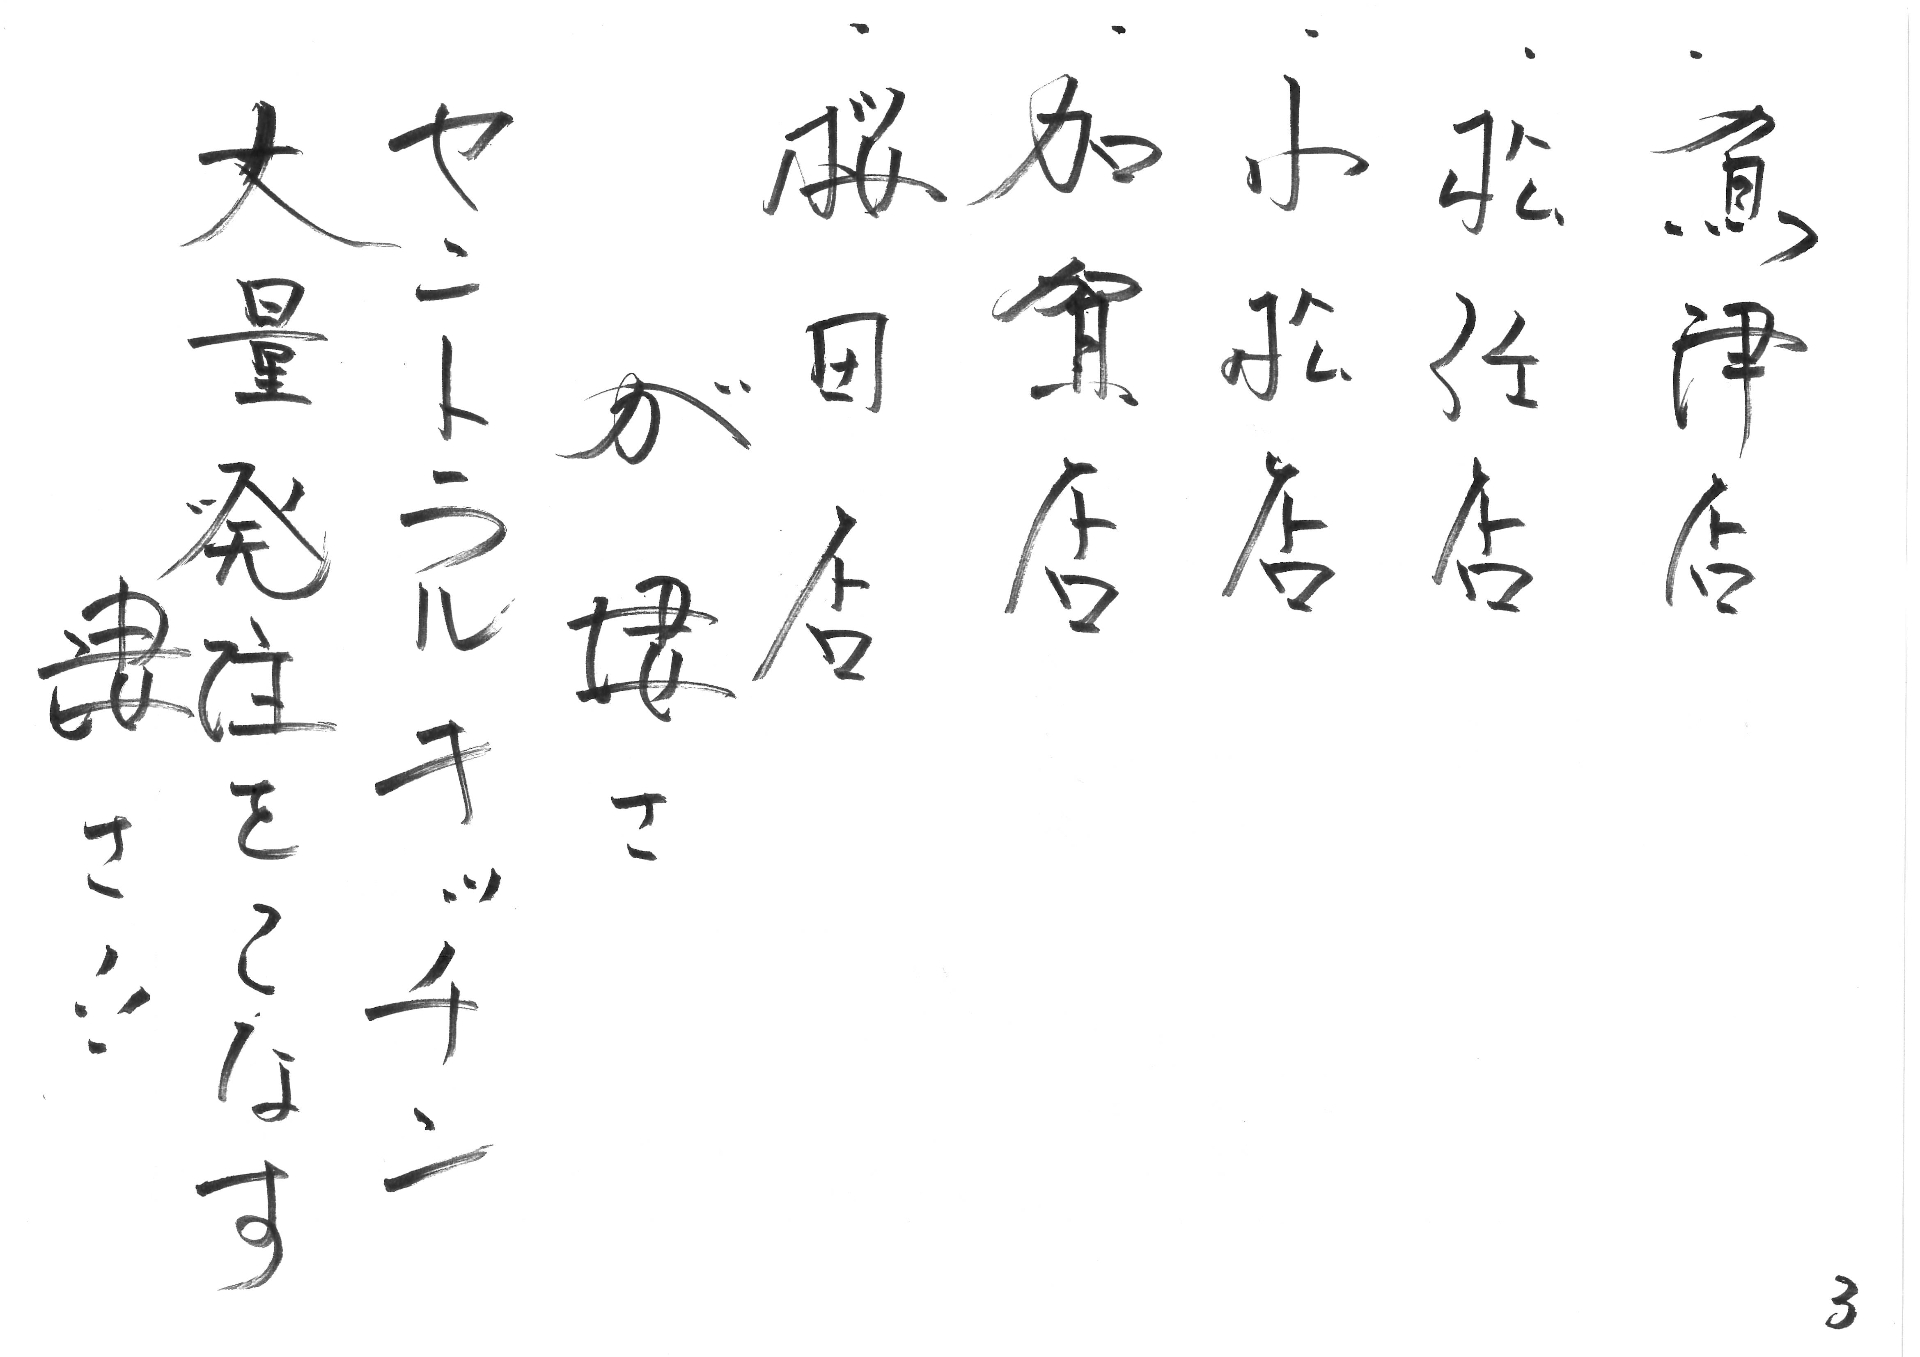 ・魚津店
・松任店
・小松店
・加賀店
・桜田店
が さ
セントラルキッチン
大量発注をこなす
凄さ!!
3